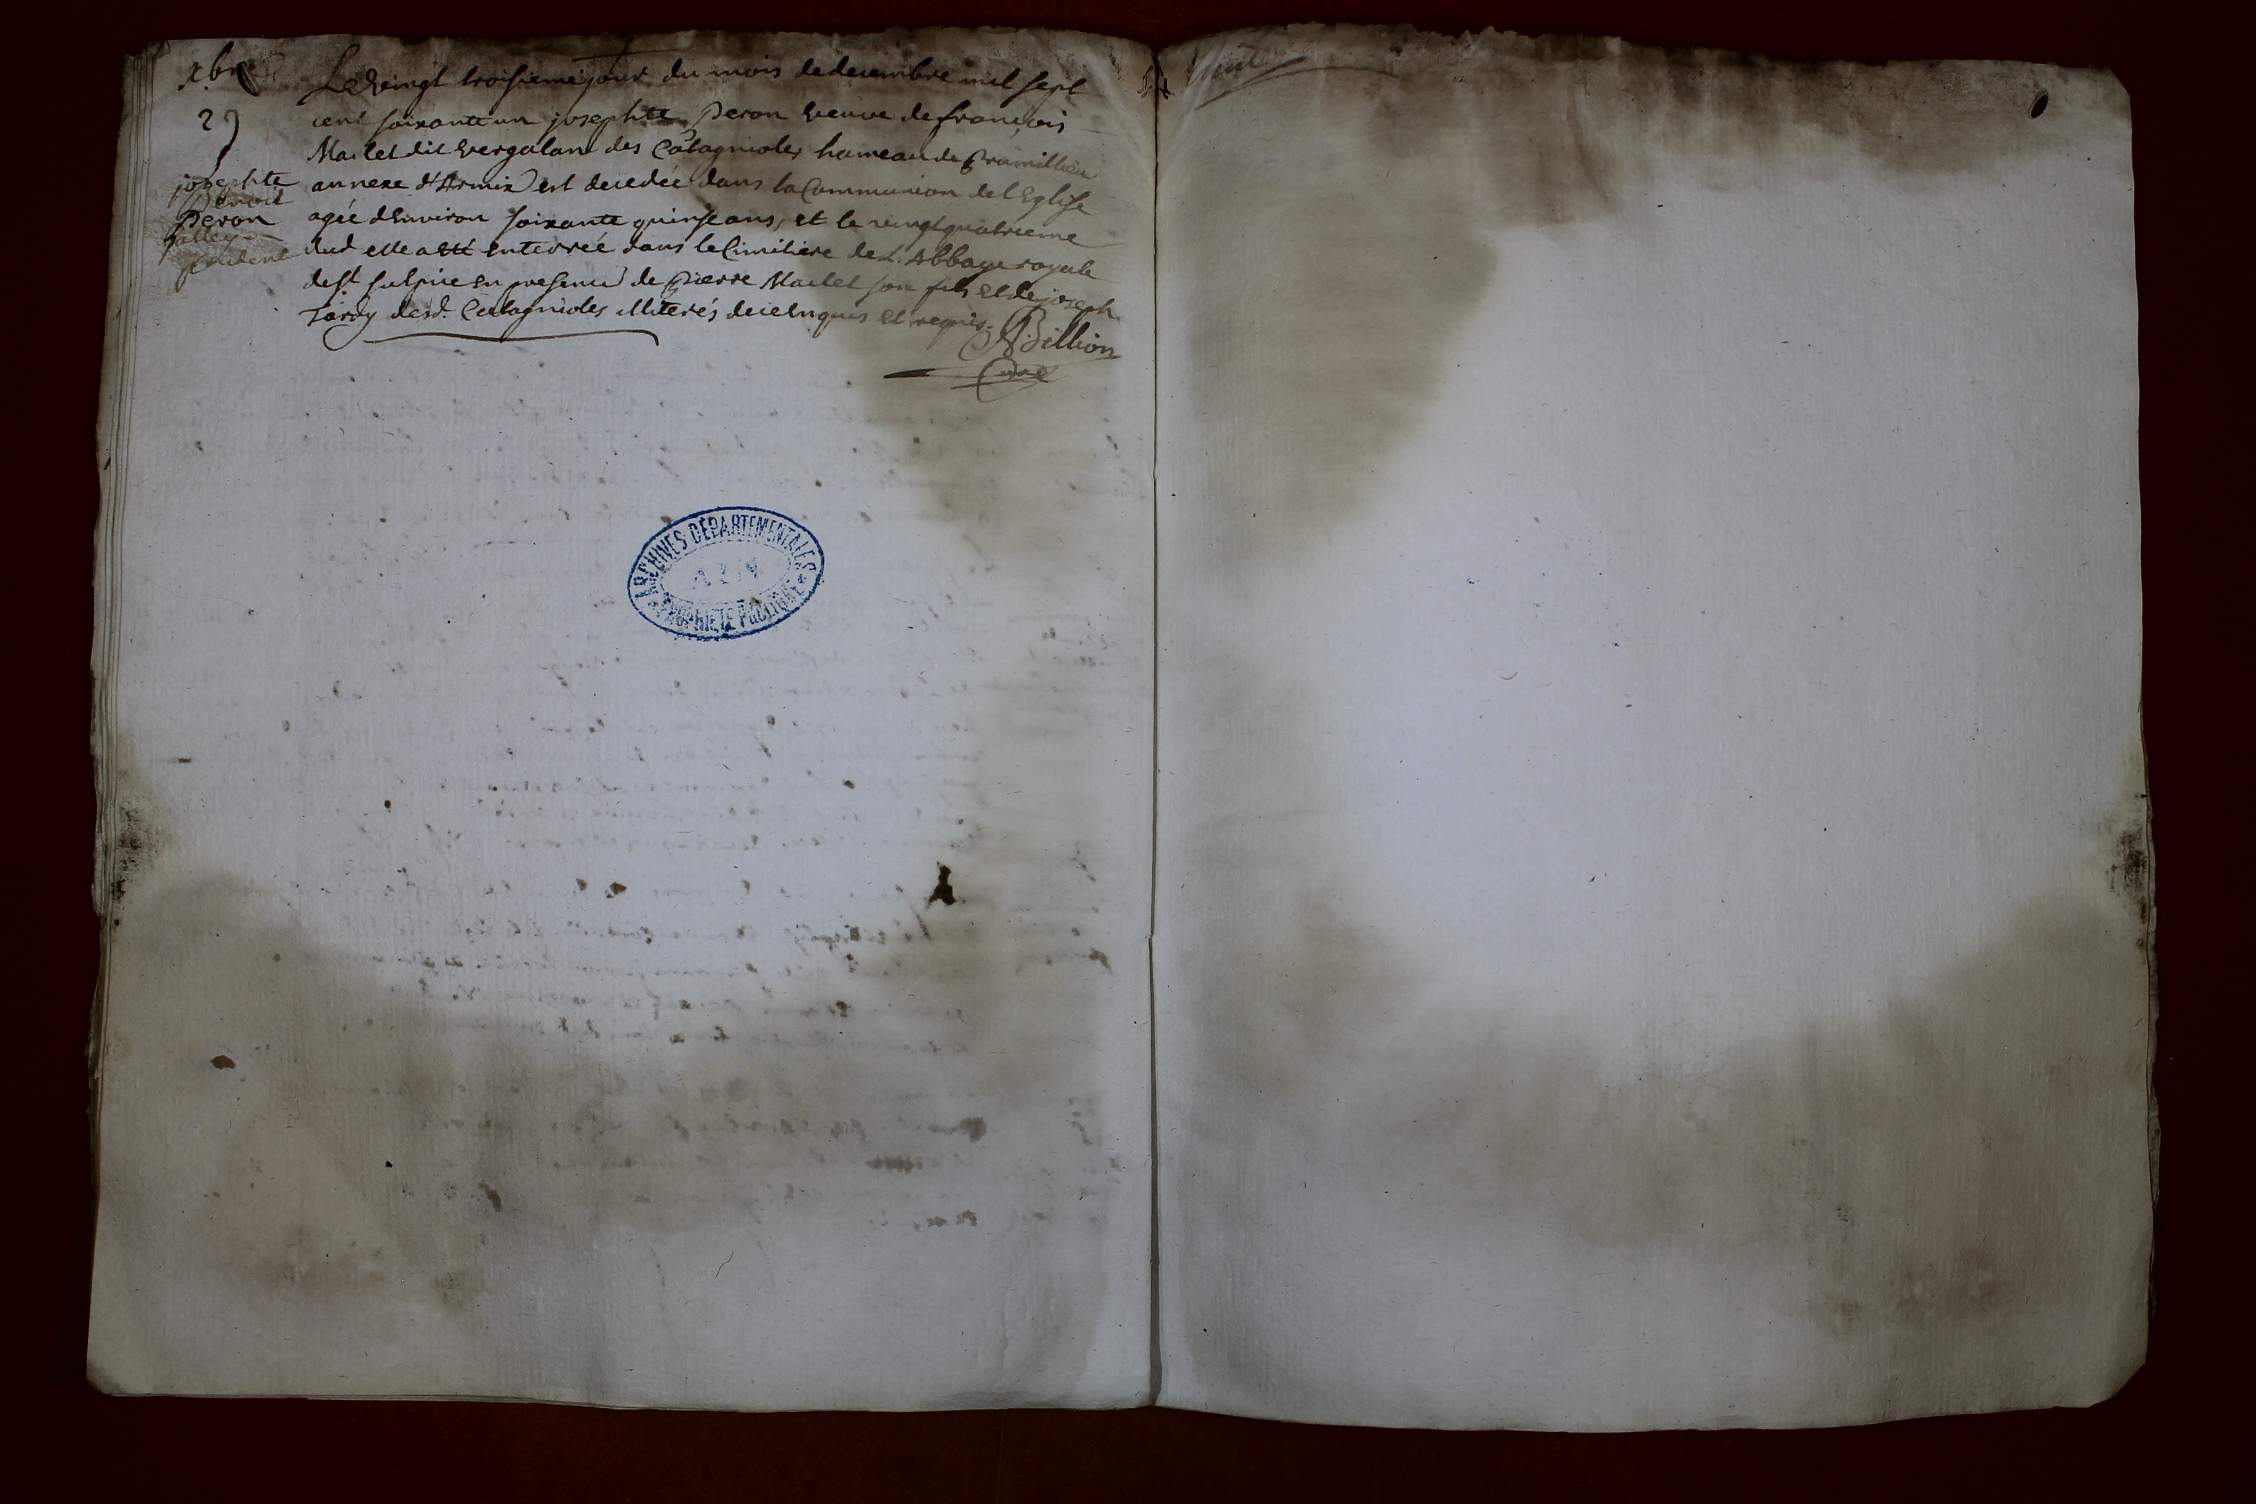 xbre
Le vingt troisieme jour du mois de decembre mil sept
23
cent soixante un josephte Peron veuve de françois
Mailet dit vergalan des Catagnioles hameau de Pramillieu
josephte
annexe d'Armix est decedée dans la Communion de l'Eglise
Peron
agée d'Environ soixante quinse ans, et le vingt quatrieme
dud elle a été enterrée dans le Cimitiere de L'Abbaye royale
de st sulpice en presence de Pierre Mailet son fils et de joseph
Tardy desd. Catagnioles illiterés de ce enquis et requis.
Billion
Curé
ARCHIVES DÉPARTEMENTALES
AIN
PROPRIÉTÉ PUBLIQUE